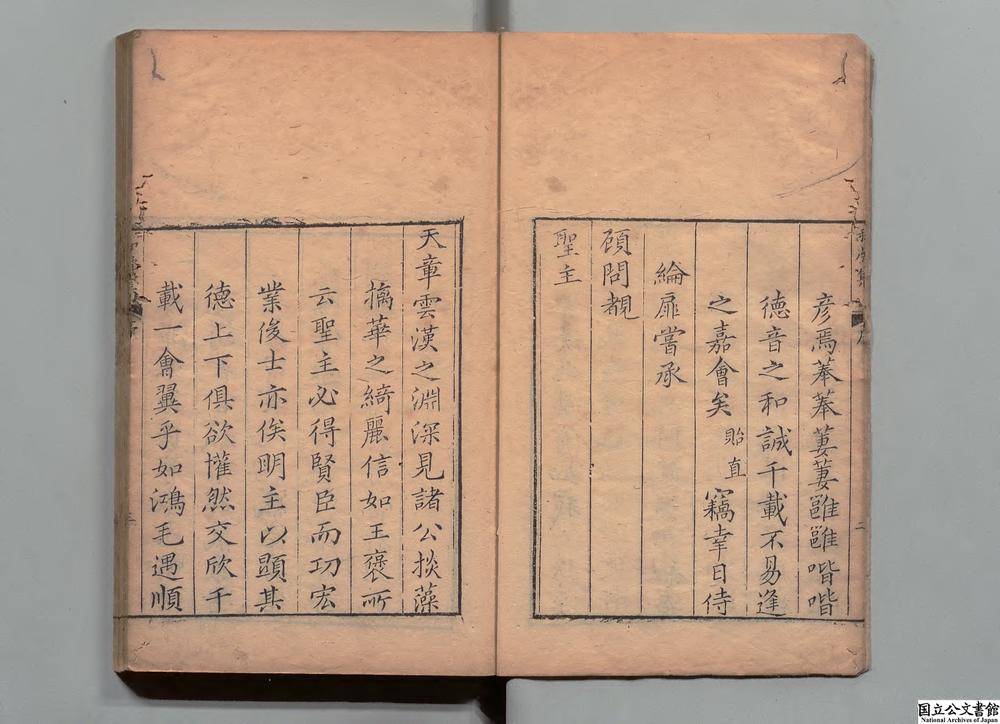 彥焉菶菶萋萋雝雝喈喈
德音之和誠千載不易逢
之嘉會矣貽直竊幸日侍
綸扉嘗承
顧問覩
聖主
天章雲漢之淵深見諸公掞藻
摛華之綺麗信如王褒所
云聖主必得賢臣而功宏
業俊士亦俟明主以顯其
德上下俱欲懽然交欣千
載一會翼乎如鴻毛遇順
二
三
国立公文書館
National Archives of Japan